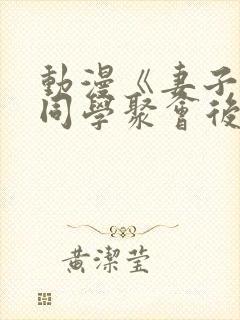 動漫《妻子
同學聚會後
黃潔莹